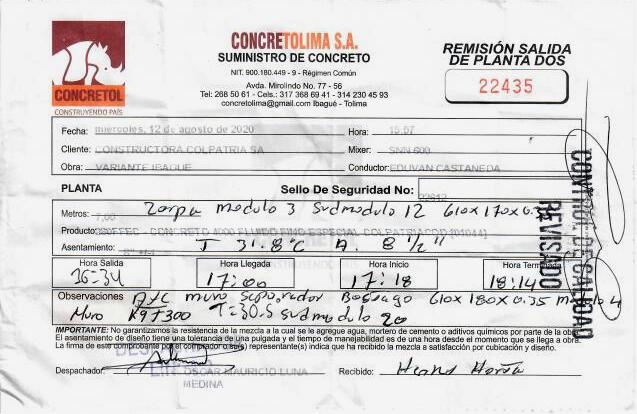 CONCRETOL
CONSTRUYENDO PAÍS
CONCRETOLIMA S.A.
SUMINISTRO DE CONCRETO
NIT. 900.180.449 - 9 - Régimen Común
Avda. Mirolindo No. 77 - 56
Tel: 268 50 61 - Cels.: 317 368 69 41 - 314 230 45 93
concretolima@gmail.com Ibagué - Tolima
REMISIÓN SALIDA
DE PLANTA DOS
22435
Fecha: miercoles, 12 de agosto de 2020 Hora: 15:57
Cliente: CONSTRUCTORA COLPATRIA SA Mixer: SNN 600
Obra: VARIANTE IBAGUE Conductor: EDUVAN CASTANEDA
PLANTA Sello De Seguridad No: 22612
Metros: 7,00 Zarpa modulo 3 submodulo 12 610x170x0.35
Producto: CONCRETO 4000 FLUIDO FINO ESPECIAL COLPATRIA
Asentamiento: T 31.8°C A. 8 1/2"
Hora Salida Hora Llegada Hora Inicio Hora Termina
16:34 17:00 17:18 18:14
Observaciones A y C muro separador 610x180x0.35
Muro K9+300 T=30.5 submodulo 20
CONTROL DE CALIDAD
REVISADO
IMPORTANTE: No garantizamos la resistencia de la mezcla a la cual se le agregue agua, mortero de cemento o aditivos químicos por parte de la obra.
El asentamiento de diseño tiene una tolerancia de una pulgada y el tiempo de manejabilidad es de una hora desde el momento que se llega a obra.
La firma de este comprobante por el comprador o su(s) representante(s) indica que ha recibido la mezcla a satisfacción por cubicación y diseño.
Despachador: OSCAR MAURICIO LUNA Recibido:
MEDINA